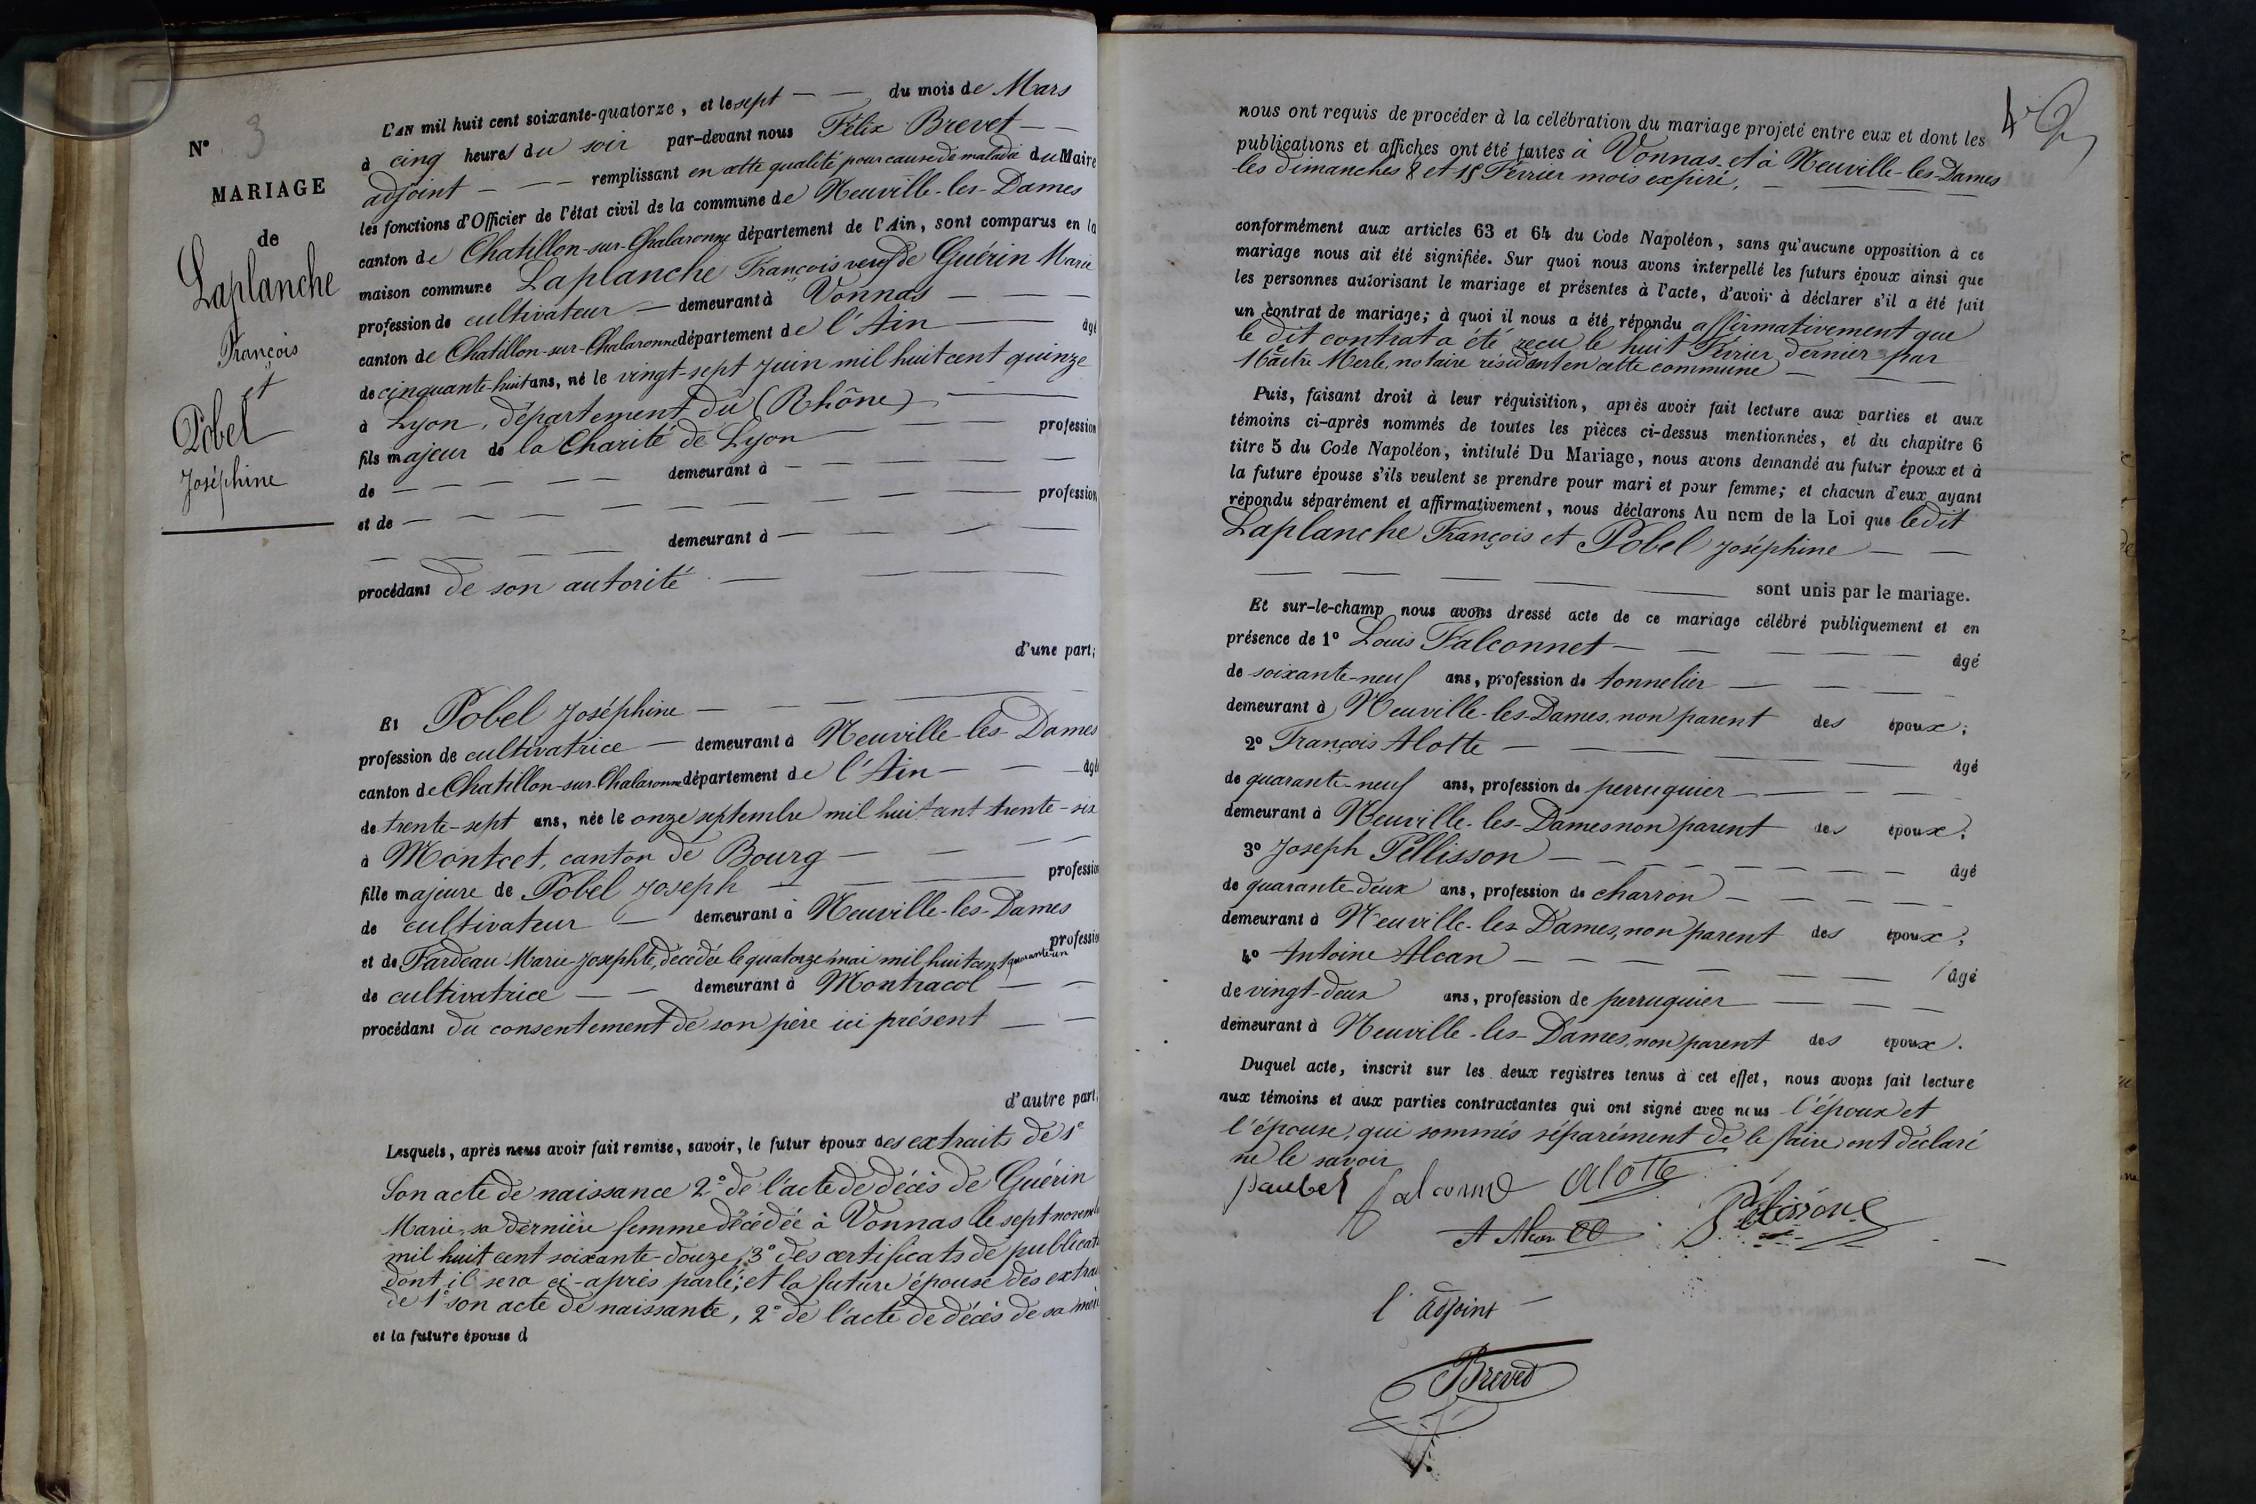 N° 3
MARIAGE
de
Laplanche
François
et
Pobel
Joséphine
L'AN mil huit cent soixante-quatorze, et le sept — — du mois de Mars
à cinq heures du soir par-devant nous Félix Brevet — —
adjoint — — — remplissant en cette qualité pour cause de maladie du Maire
les fonctions d'Officier de l'état civil de la commune de Neuville-les-Dames
canton de Chatillon-sur-Chalaronne département de l'Ain, sont comparus en la
maison commune Laplanche François veuf de Guérin Marie
profession de cultivateur — demeurant à Vonnas — — —
canton de Chatillon-sur-Chalaronne département de l'Ain — — âgé
de cinquante-huit ans, né le vingt-sept Juin mil huit cent quinze
à Lyon, département du (Rhône) —
fils majeur de la Charité de Lyon — — — profession
de — — — — — demeurant à — — — — —
et de — — — — — — — — profession
— — — — demeurant à — — — — —
procédant de son autorité — — — —
d'une part;
Et Pobel Joséphine — — — —
profession de cultivatrice — demeurant à Neuville-les-Dames
canton de Chatillon-sur-Chalaronne département de l'Ain — — âgée
de trente-sept ans, née le onze septembre mil huit cent trente-six
à Montcet, canton de Bourg — — —
fille majeure de Pobel Joseph — — profession
de cultivateur — demeurant à Neuville-les-Dames
et de Fardeau Marie-Josephte, décédée le quatorze mai mil huit cent quarante-un profession
de cultivatrice — — demeurant à Montracol — —
procédant du consentement de son père ici présent — —
d'autre part,
Lesquels, après nous avoir fait remise, savoir, le futur époux des extraits de 1°
Son acte de naissance 2° de l'acte de décès de Guérin
Marie, sa dernière femme décédée à Vonnas le sept novemb
mil huit cent soixante-douze, 3° des certificats de publicat
dont il sera ci-après parlé; et la future épouse des extrai
de 1° son acte de naissante, 2° de l'acte de décès de sa mère
et la future épouse d
nous ont requis de procéder à la célébration du mariage projeté entre eux et dont les
publications et affiches ont été faites à Vonnas et à Neuville-les-Dames
les dimanches 8 et 15 Février mois expiré, — — —
conformément aux articles 63 et 64 du Code Napoléon, sans qu'aucune opposition à ce
mariage nous ait été signifiée. Sur quoi nous avons interpellé les futurs époux ainsi que
les personnes autorisant le mariage et présentes à l'acte, d'avoir à déclarer s'il a été fait
un contrat de mariage; à quoi il nous a été répondu affirmativement que
le dit contrat a été reçu le huit Février dernier par
Maître Merle, notaire résidant en cette commune — —
Puis, faisant droit à leur réquisition, après avoir fait lecture aux parties et aux
témoins ci-après nommés de toutes les pièces ci-dessus mentionnées, et du chapitre 6
titre 5 du Code Napoléon, intitulé Du Mariage, nous avons demandé au futur époux et à
la future épouse s'ils veulent se prendre pour mari et pour femme; et chacun d'eux ayant
répondu séparément et affirmativement, nous déclarons Au nom de la Loi que ledit
Laplanche François et Pobel Joséphine — —
— — — — sont unis par le mariage.
Et sur-le-champ nous avons dressé acte de ce mariage célébré publiquement et en
présence de 1° Louis Falconnet — — — — — âgé
de soixante-neuf ans, profession de tonnelier — — — —
demeurant à Neuville-les-Dames, non parent des époux;
2° François Alotte — — — — — âgé
de quarante-neuf ans, profession de perruquier — — — —
demeurant à Neuville-les-Dames non parent des époux;
3° Joseph Pellisson — — — — — — âgé
de quarante-deux ans, profession de charron — — — —
demeurant à Neuville-les Dames, non parent des époux;
4° Antoine Alcan — — — — — — âgé
de vingt-deux ans, profession de perruquier — — —
demeurant à Neuville-les-Dames, non parent des époux.
Duquel acte, inscrit sur les deux registres tenus à cet effet, nous avons fait lecture
aux témoins et aux parties contractantes qui ont signé avec nous l'époux et
l'épouse, qui sommés séparément de le faire ont déclaré
ne le savoir
paubel falconnet Alotte
A Alcan Pélissone
l'adjoint —
Brevet